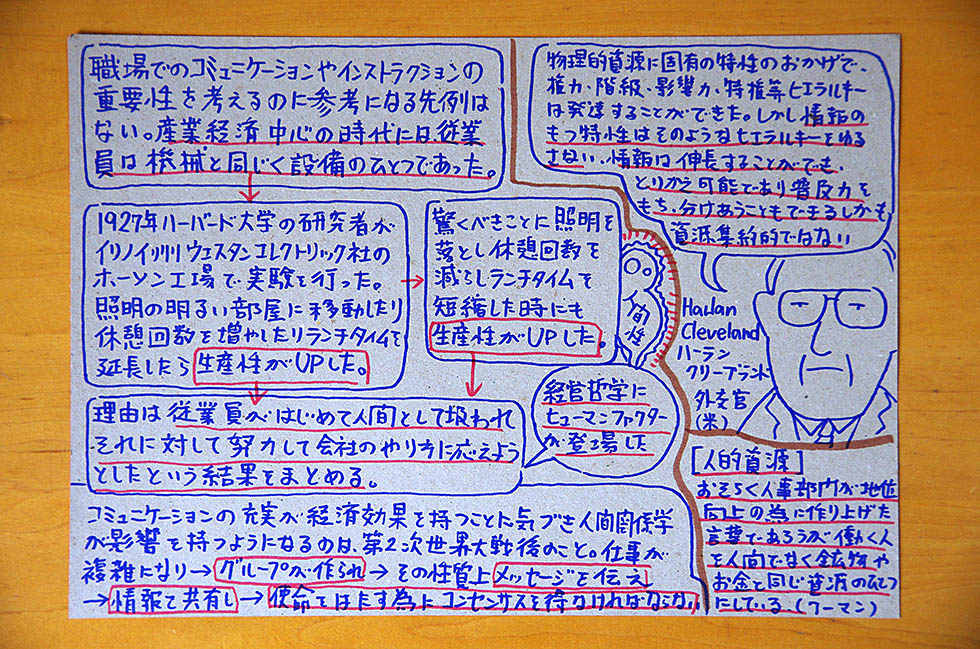 職場でのコミュニケーションやインストラクションの
重要性を考えるのに参考になる先例は
ない。産業経済中心の時代には従業
員は機械と同じく設備のひとつであった。
1927年ハーバード大学の研究者が
イリノイ州ウェスタンエレクトリック社の
ホーソン工場で実験を行った。
照明の明るい部屋に移動したり
休憩回数を増やしたりランチタイムを
延長したら生産性がUPした。
驚くべきことに照明を
落とし休憩回数を
減らしランチタイムを
短縮した時にも
生産性がUPした。
理由は従業員がはじめて人間として扱われ
それに対して努力して会社のやり方に応えよう
としたという結果をまとめる。
経営哲学に
ヒューマンファクター
が登場した
コミュニケーションの充実が経済効果を持つことに気づき人間関係学
が影響を持つようになるのは、第2次世界大戦後のこと。仕事が
複雑になり→グループが作られ→その性質上メッセージを伝え
→情報を共有し→使命をはたす為にコンセンサスを得なければならない
物理的資源に固有の特性のおかげで、
権力・階級・影響力・特権等ヒエラルキー
は発達することができた。しかし情報の
もつ特性はそのようなヒエラルキーをゆる
さない、情報は伸長することができ、
とりかえ可能であり普及力を
もち、分けあうこともできるしかも
資源集約的ではない
Harlan
Cleveland
ハーラン
クリーブランド
外交官
(米)
[人的資源]
おそらく人事部門が地位
向上の為に作り上げた
言葉であろうが働く人
を人間でなく鉱物や
お金と同じ資源のひとつ
にしている。(ワーマン)